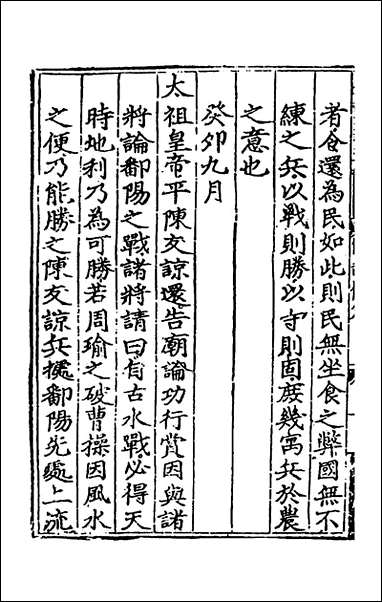 者令還為民如此則民無坐食之弊國無不
練之兵以戰則勝以守則固庶幾寓兵於農
之意也
癸卯九月
太祖皇帝平陳友諒還告廟論功行賞因與諸
將論鄱陽之戰諸將請曰自古水戰必得天
時地利乃為可勝若周瑜之破曹操因風水
之便乃能勝之陳友諒兵據鄱陽先處上流